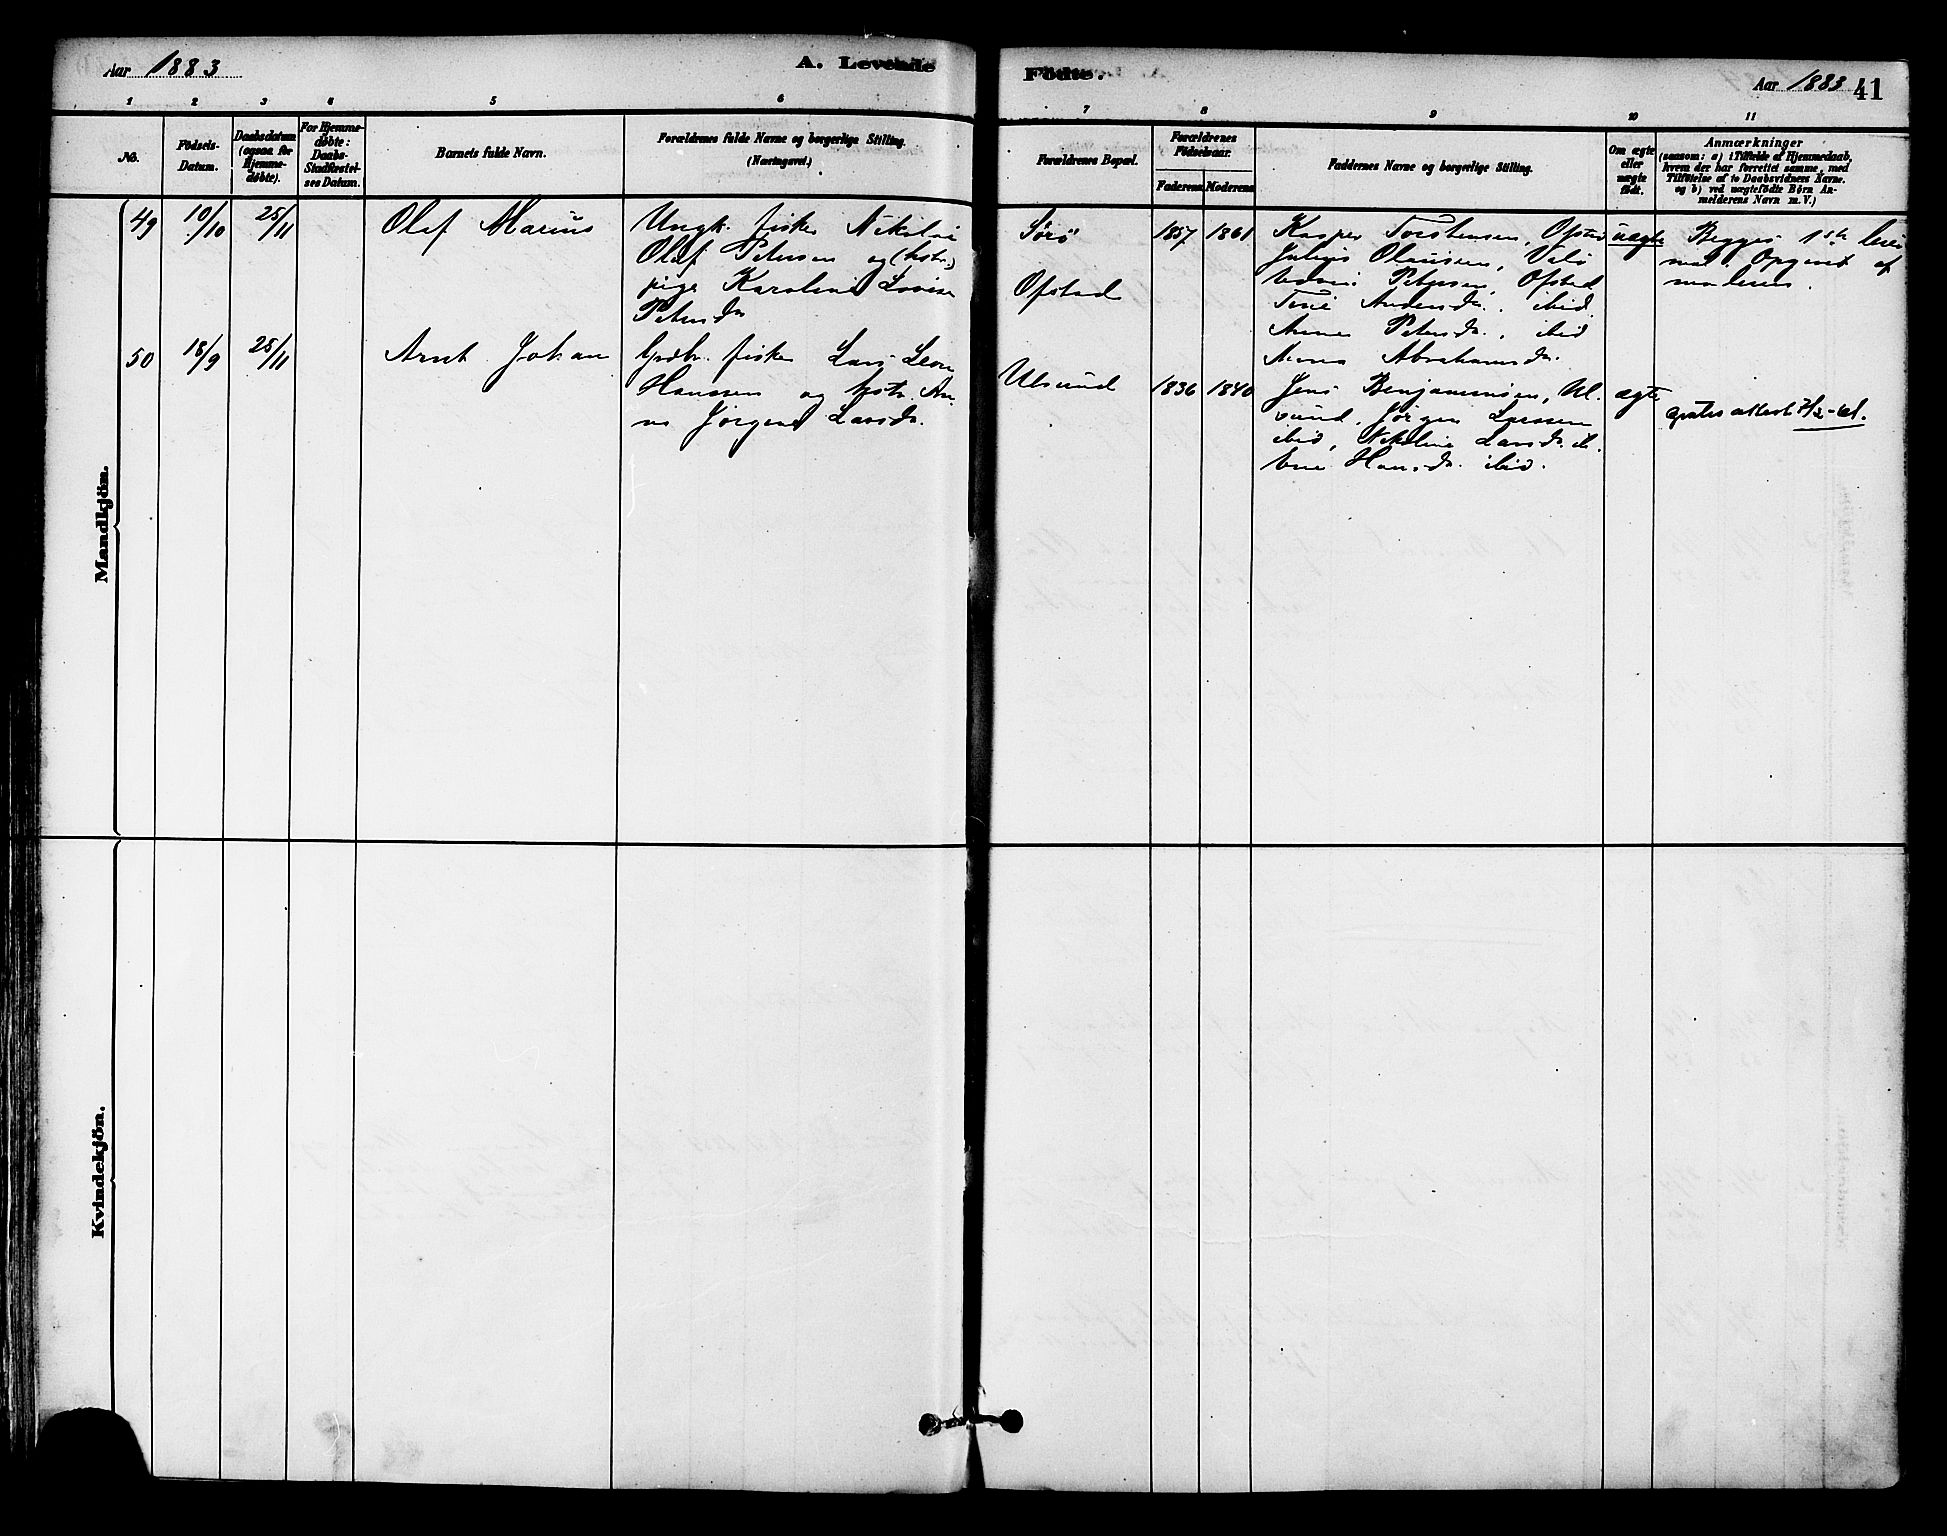 Aar 1883
A. Levende
Fødte.
Aar 1883
41
1 2 3 4 5 6 7 8 9 10 11
No.
Födsels-Datum.
Daabsdatum (ogsaa for Hjemme-døbte).
For Hjemme-døbte: Daabs-Stadfæstel-ses Datum.
Barnets fulde Navn.
Forældrenes fulde Navne og borgerlige Stilling.
(Næringsvei.)
Forældrenes Bopæl.
Forældrenes Födselsaar.
Faderens Moderens
Faddernes Navne og borgerlige Stilling.
Om ægte eller uægte født.
Anmærkninger
(saasom: a) i Tilfælde af Hjemmedaab,
hvem der har forrettet samme, med
Tilföielse af to Daabsvidners Navne.
og b) ved uægtefödte Börn An-
melderens Navn m. V.)
Mandkjön.
49 10/10 25/11 Olaf Marius
Ungk. fisker Nikolai
Olaf Petersen og (hstr.)
pige Karoline Lovise
Petersdr.
Sørö
Ofstad
1857 1861
Kasper Torstensen, Ofstad
Julius Olausen, Valö
Edvin Petersen, Ofsted
Andersdr. ibid.
Anna Petersdr., ibid
Anna Abrahamsdr.
uægte
Begges 1ste leier
maal. Opgivet af
moderen.
50 18/9 25/11 Arnt Johan
Grdbr. fisker Lars Leon
Hanssen og hstr. An-
na Jørgine Larsdr.
Ulsund
1836 1840
Jens Benjaminsen, Ul-
sund, Jörgen Larssen
ibid, Nikoline Larsdr. ib.
Hansdr. ibid.
ægte
gratis attest 7/2-61.
Kvindekjön.